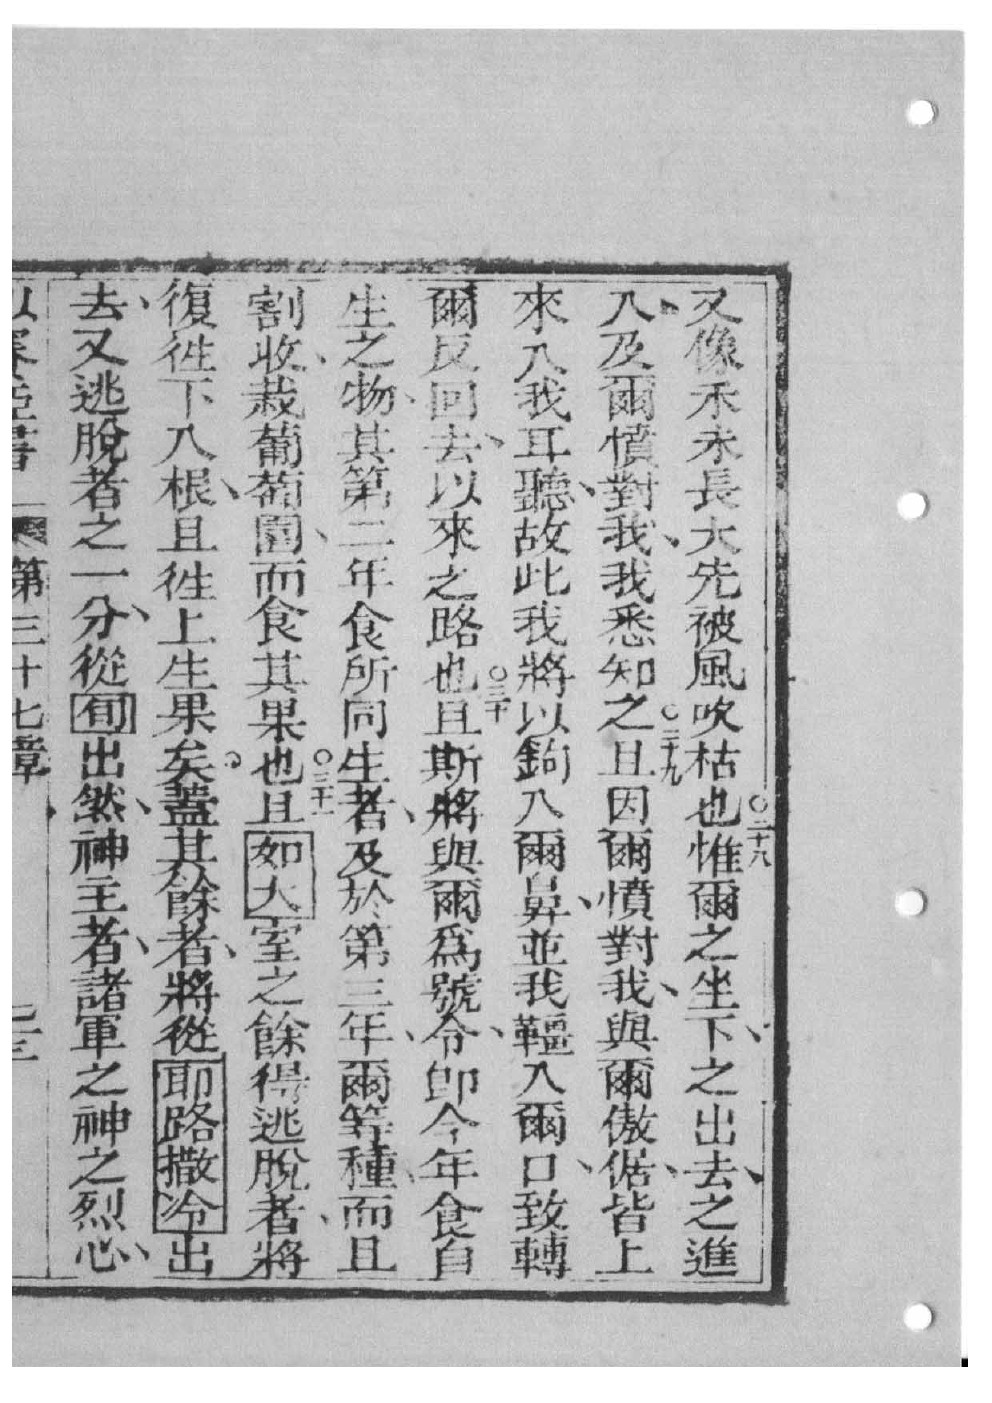 又像禾未長大先被風吹枯也○二十八惟爾之坐下、之出去、之進
入、及爾憤對我、我悉知之○二十九且因爾憤對我、與爾傲倨、皆上
來入我耳聽、故此我將以鉤入爾鼻、並我韁入爾口、致轉
爾反回去、以來之路也○三十且斯將與爾爲號令、卽今年食自
生之物、其第二年食所同生者、及於第三年、爾等種、而且
割收、栽葡萄園、而食其果也○三十一且如大室之餘得逃脫者、將
復徃下入根、且徃上生果矣。蓋其餘者、將從耶路撒冷出
去、又逃脫者之一分、從旬出、然神主者、諸軍之神之烈心、
以賽亞書 第三十七章